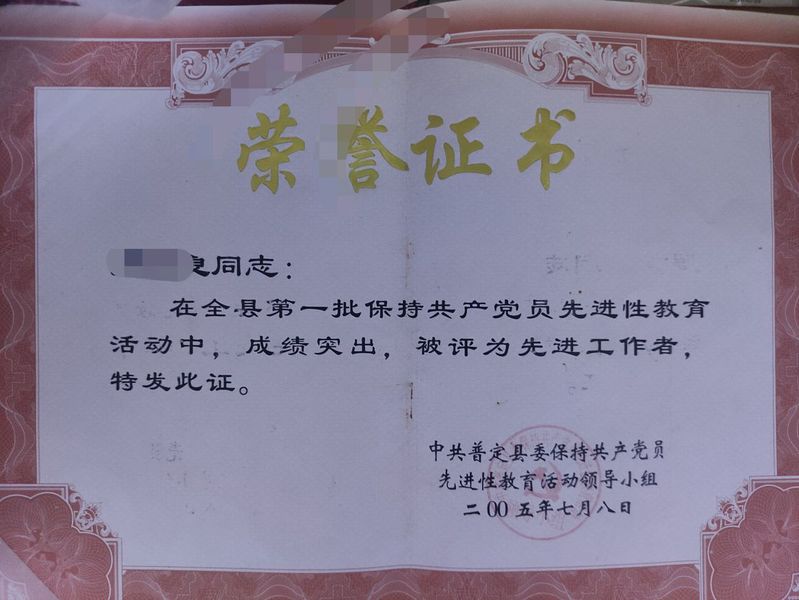 荣誉证书
良同志：
在全县第一批保持共产党员先进性教育
活动中，成绩突出，被评为先进工作者，
特发此证。
中共普定县委保持共产党员
先进性教育活动领导小组
二00五年七月八日